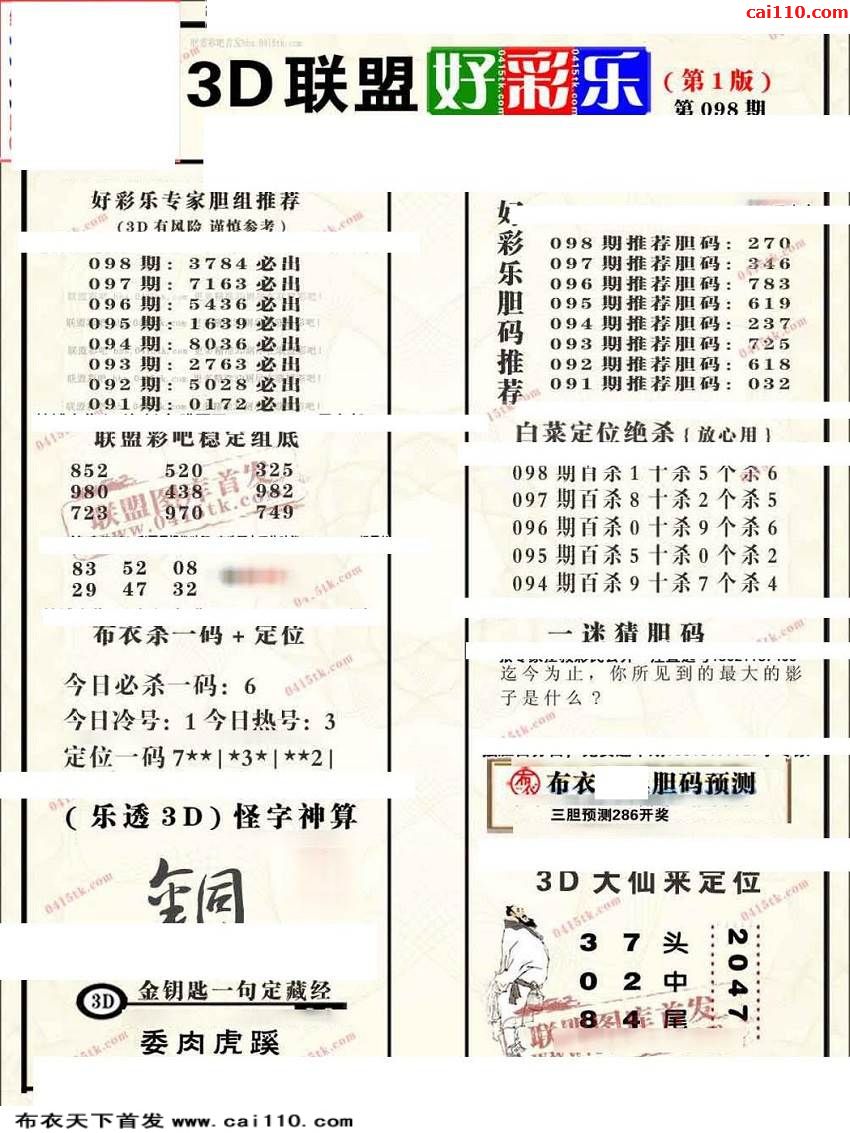 cai110.com
联盟彩吧首发bbs.0415tk.com
3D联盟好彩乐
(第1版)
第098期
好彩乐专家胆组推荐
(3D有风险 谨慎参考)
098期: 3784必出
097期: 7163必出
096期: 5436必出
095期: 1639必出
094期: 8036必出
093期: 2763必出
092期: 5028必出
091期: 0172必出
联盟彩吧稳定组底
852 520 325
980 438 982
723 970 749
联盟图库首发
www.0415tk.com
83 52 08
29 47 32
布衣杀一码+定位
今日必杀一码: 6
今日冷号: 1 今日热号: 3
定位一码 7**|*3*|**2|
(乐透3D)怪字神算
銅
3D 金钥匙一句定藏经
委肉虎蹊
好彩乐胆码推荐
098期推荐胆码: 270
097期推荐胆码: 346
096期推荐胆码: 783
095期推荐胆码: 619
094期推荐胆码: 237
093期推荐胆码: 725
092期推荐胆码: 618
091期推荐胆码: 032
白菜定位绝杀{放心用}
098期百杀1十杀5个杀6
097期百杀8十杀2个杀5
096期百杀0十杀9个杀6
095期百杀5十杀0个杀2
094期百杀9十杀7个杀4
一迷猜胆码
迄今为止，你所见到的最大的影
子是什么？
布衣 布衣 胆码预测
三胆预测286开奖
3D大仙来定位
3 7 头
0 2 中
8 4 尾
2047
联盟图库首发
布衣天下首发 www.cai110.com